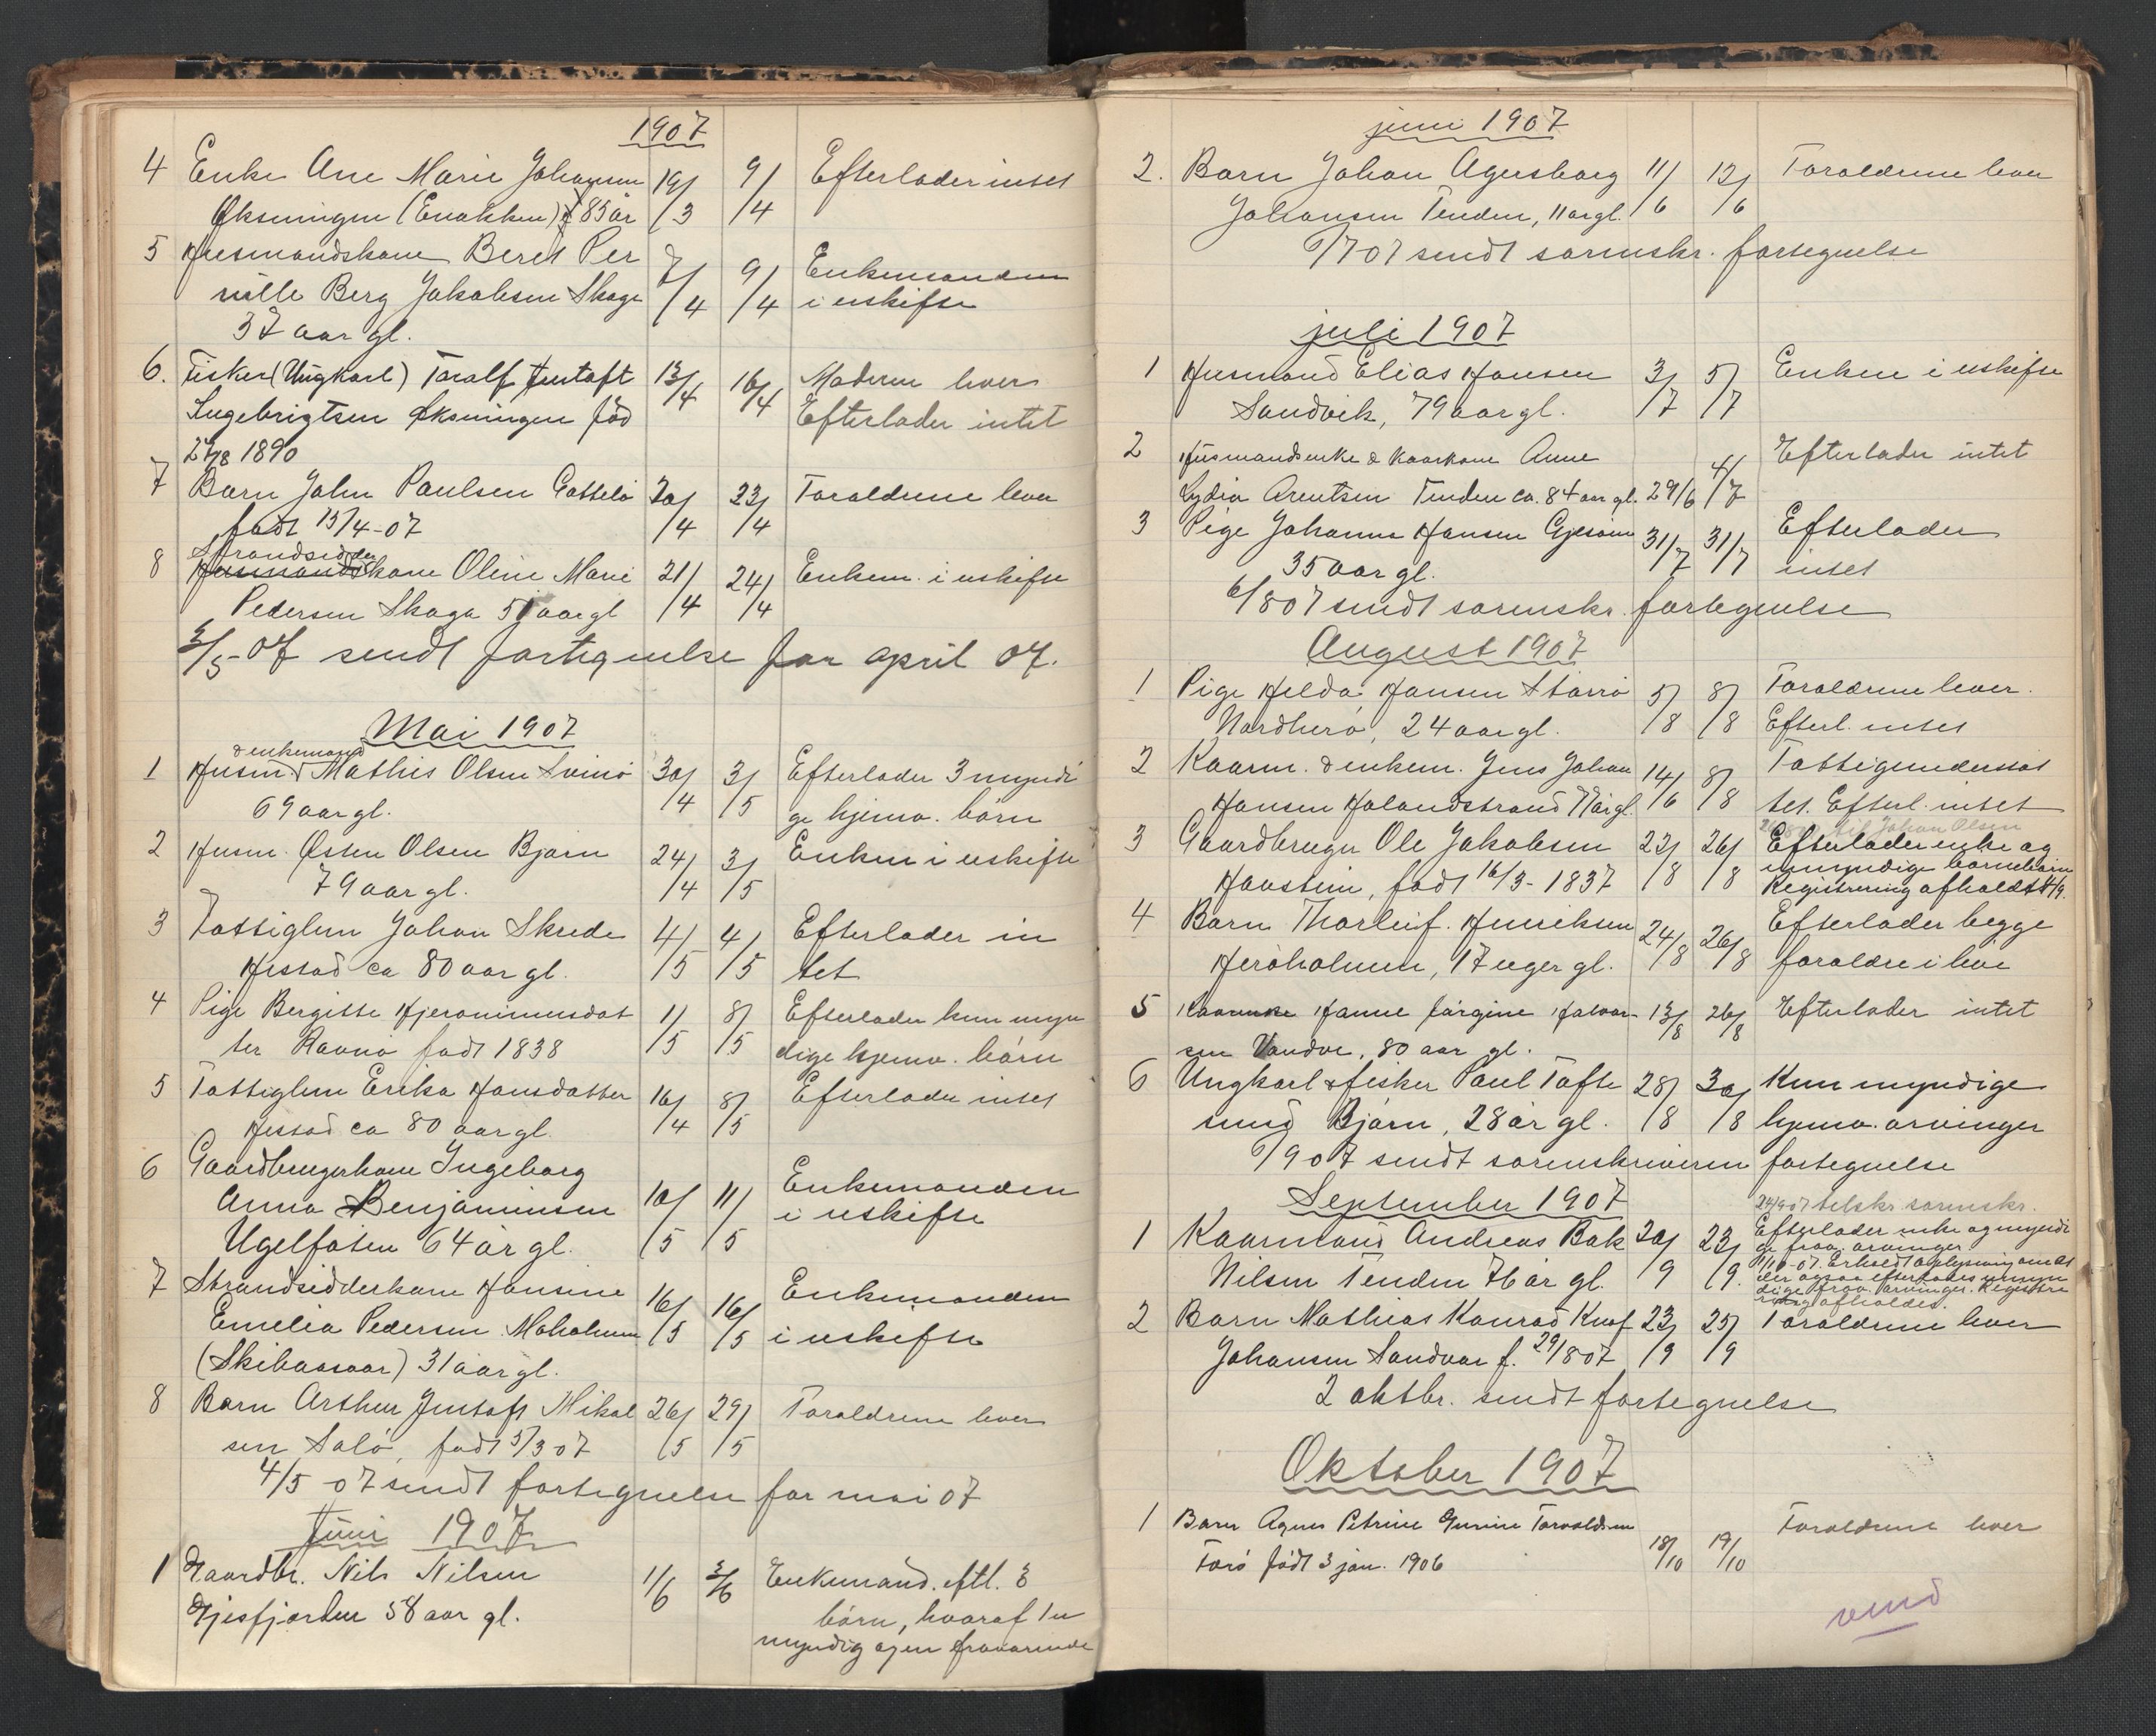 1907
4 Enke Ane Marie Johansen 19/3 9/4 Efterlader intet
Øksningen (Enakken) 85 år
5 Husmandskone Beret Per
nille Berg Jakobsen Skaga 7/4 9/4 Enkemanden
i uskifte
37 aar gl.
6. Fisker (Ungkarl) Toralf Justaft 13/4 16/4 Moderen lever
Ingebrigtsen Øksningen född Efterlader intet
27/8 1890
7 Barn John Paulsen 20/4 23/4 Forældrene lever
født 15/4-07
Strandsidder
8 Husmandskone Oline Marie 21/4 24/4 Enkem. i uskifte
Pedersen Skaga 51 aar gl
3/5-07 sendt fortegnelse for april 07.
Mai 1907
& enkemand
1 Husm. Mathis Olsen Svinö 30/4 3/5 Efterlader 3 myndi
69 aar gl. ge hjemv. börn
2 Husm. Østen Olsen Bjørn 24/4 3/5 Enken i uskifte
79 aar gl.
3 Fattiglem Johan Skrede 4/5 4/5 Efterlader in
Hestad ca 80 aar gl. tet
4 Pige Bergitte Hjeronimusdat 1/5 8/5 Efterlader kun myn
ter Ravnö født 1838 dige hjemv. börn
5 Fattiglem Erika Hansdatter 16/4 8/5 Efterlader intet
Hestad ca 80 aar gl.
6 Gaardbrugerkone Ingeborg
Anna Benjaminsen 10/5 11/5 Enkemanden
i uskifte
Ugelfoten 64 år gl.
7 Strandsidderkone Hansine 16/5 16/5 Enkemanden
Emelia Pedersen Moholmen i uskifte
(Skibaasvær) 31 aar gl.
8 Barn Arthur Justaft Mikal 26/5 29/5 Forældrene lever
sen Salö, født 5/3 07
4/5 07 sendt fortegnelse for mai 07
Juni 1907
1 Gaardbr. Nils Nilsen 1/6 3/6 Enkemand. eftl. 3
Gjesfjorden 58 aar gl. börn, hvoraf 1 u
myndig og en fraværende
juni 1907
2. Barn Johan Agersborg 11/6 12/6 Forældrene lever
Johansen Tenden, 11 år gl.
6/7 07 sendt sorenskr. fortegnelse
juli 1907
1 Husmand Elias Hansen 3/7 5/7 Enken i uskifte
Sandvik, 79 aar gl.
2 Husmandsenke & kaarkone Anne Efterlader intet
Lydia Arentsen Tenden ca. 84 aar gl. 29/6 4/7
3 Pige Johanna Hansen 31/7 31/7 Efterlader
35 aar gl. intet
6/8 07 sendt sorenskr. fortegnelse
August 1907
1 Pige Helda Hansen 5/8 8/8 Forældrene lever.
Nordherö, 24 aar gl. Efterl. intet
2 Kaarm. & enkem. Jens Johan 14/6 8/8 Fattigunderstöt
Hansen Holandstrand 77 år gl. tet. Efterl. intet
til Johan Olsen
3 Gaardbruger Ole Jakobsen 23/8 26/8 Efterlader enke og
Havstein, født 16/3-1837 umyndige barnebörn
Registrering afholdt 4/9.
4 Barn Thorleif Henriksen 24/8 26/8 Efterlader begge
Heröholmen, 17 uger gl. forældre i live
5 Kaarenke Hanne Jörgine Halvor- 13/8 26/8 Efterlader intet
sen Vandve, 80 aar gl.
6 Ungkarl & fisker Paul Tofte 28/8 30/8 Kun myndige
sund Bjørn, 28 år gl. hjemv. arvinger
6/9 07 sendt sorenskriveren fortegnelse
September 1907
24/9 07 tilskr. sorenskr.
1 Kaarmand Andreas Bak 20/9 23/9. Efterlader enke og myndi
ge frav. arvinger
Nilsen Tenden 76 år gl. 1/10-07. Erholdt oplysning om at
der ogsaa efterlades umyn
dige frav. arvinger. Registre
ring afholdes.
2 Barn Mathias Konrad Knof 23/9 25/9 Forældrene lever
Johansen Sandvær f. 29/8 07
2 oktbr. sendt fortegnelse
Oktober 1907
1 Barn Agnes Petrine Gurine Torvaldsen 18/10 19/10 Forældrene lever
Torö født 3 jan. 1906
vend